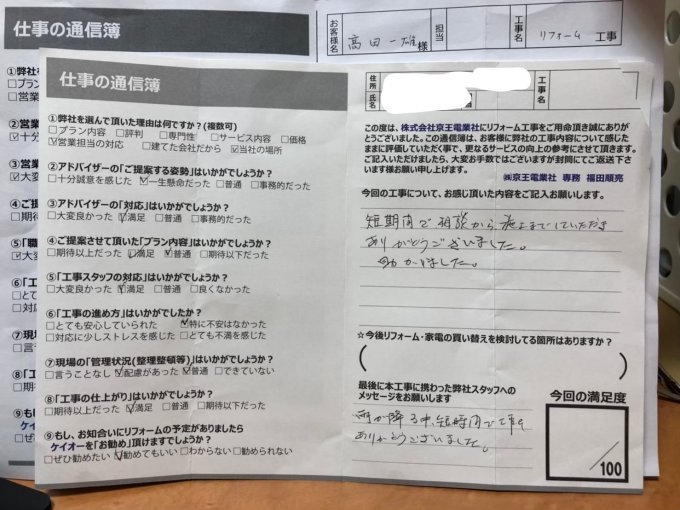 仕事の通信簿
お客様名
高田 一雄 様
担当
工事名
リフォーム 工事
①弊社を
□プラン
□営業
②営業
☑十分
③営業
☑大変
④ご提
□期待
⑤「職
☑大変
⑥「工
□とて
□対応
⑦現場
□言う
⑧「工
□期待
⑨もし
ケイオー
□ぜひ
仕事の通信簿
①弊社を選んで頂いた理由は何ですか?(複数可)
□プラン内容 □評判 □専門性 □サービス内容 □価格
☑営業担当の対応 □建てた会社だから ☑当社の場所
②アドバイザーの「ご提案する姿勢」はいかがでしょうか?
□十分誠意を感じた ☑一生懸命だった □普通 □事務的だった
③アドバイザーの「対応」はいかがでしょうか?
□大変良かった ☑満足 □普通 □事務的だった
④ご提案させて頂いた「プラン内容」はいかがでしょうか?
□期待以上だった □満足 ☑普通 □期待以下だった
⑤「工事スタッフの対応」はいかがでしょうか?
□大変良かった ☑満足 □普通 □良くなかった
⑥「工事の進め方」はいかがでしたか?
□とても安心していられた ☑特に不安はなかった
□対応に少しストレスを感じた □とても不満を感じた
⑦現場の「管理状況(整理整頓等)」はいかがでしょうか?
□言うことなし ☑配慮があった ☑普通 □できていない
⑧「工事の仕上がり」はいかがでしょうか?
□期待以上だった ☑満足 □普通 □期待以下だった
⑨もし、お知合いにリフォームの予定がありましたら
ケイオーを「お勧め」頂けますでしょうか?
□ぜひ勧めたい ☑勧めてもいい □わからない □勧められない
住所
氏名
工事名
この度は、株式会社京王電業社にリフォーム工事をご用命頂き誠にありが
とうございました。この通信簿は、お客様に弊社の工事内容について感じた
ままに評価していただく事で、更なるサービスの向上の参考にさせて頂きます。
ご記入いただけましたら、大変お手数ではございますが封筒にてご返送下さ
います様お願い申し上げます。
㈱京王電業社 専務 福田順亮
今回の工事について、お感じ頂いた内容をご記入お願いします。
短期間で相談から施工までしていただき
ありがとうございました。
助かりました。
☆今後リフォーム・家電の買い替えを検討してる箇所はありますか?
( )
最後に本工事に携わった弊社スタッフへの
メッセージをお願いします
雨が降る中、短時間で工事を
ありがとうございました。
今回の満足度
/100